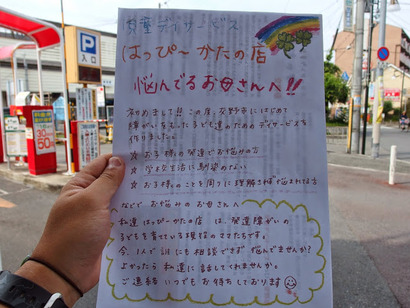 児童デイサービス
はっぴ〜かたの店
悩んでるお母さんへ!!
初めまして!! この度、交野市にはじめて
障がいをもった子ども達のためのデイサービスを
作りました。
☆ お子様の発達でお悩みの方
☆ 学校生活に馴染めない
☆ お子様のことを周りに理解されず悩まれてる方
などで お悩みの お母さんへ
私達 はっぴ〜かたの店 は、発達障がいの
子どもを育てている現役のママたちです。
今、1人で 誰にも相談できず 悩んでませんか?
よかったら 私達に 話してくれませんか。
ご連絡 いつでも お待ちしております
P